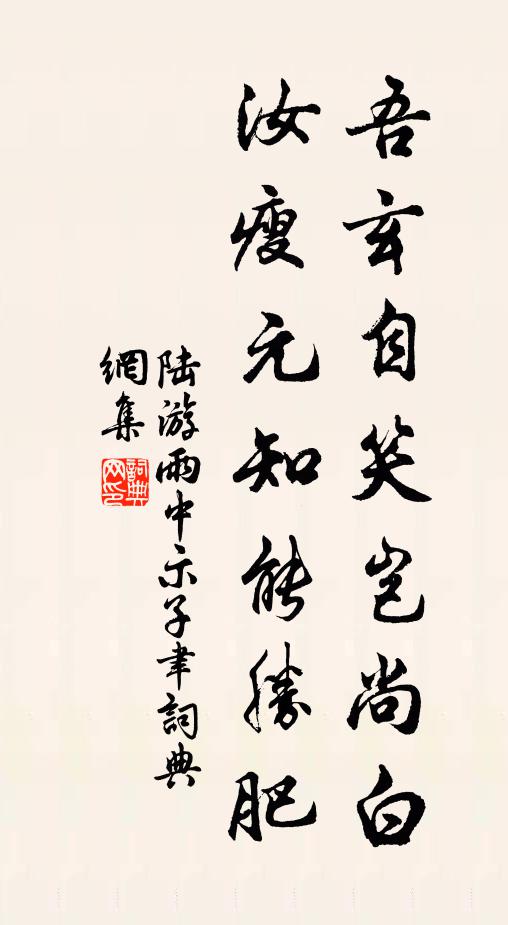 吾玄自笑岂尚白
汝瘦元知能勝肥
陆游雨中示子聿詞典
網集
詞典网印